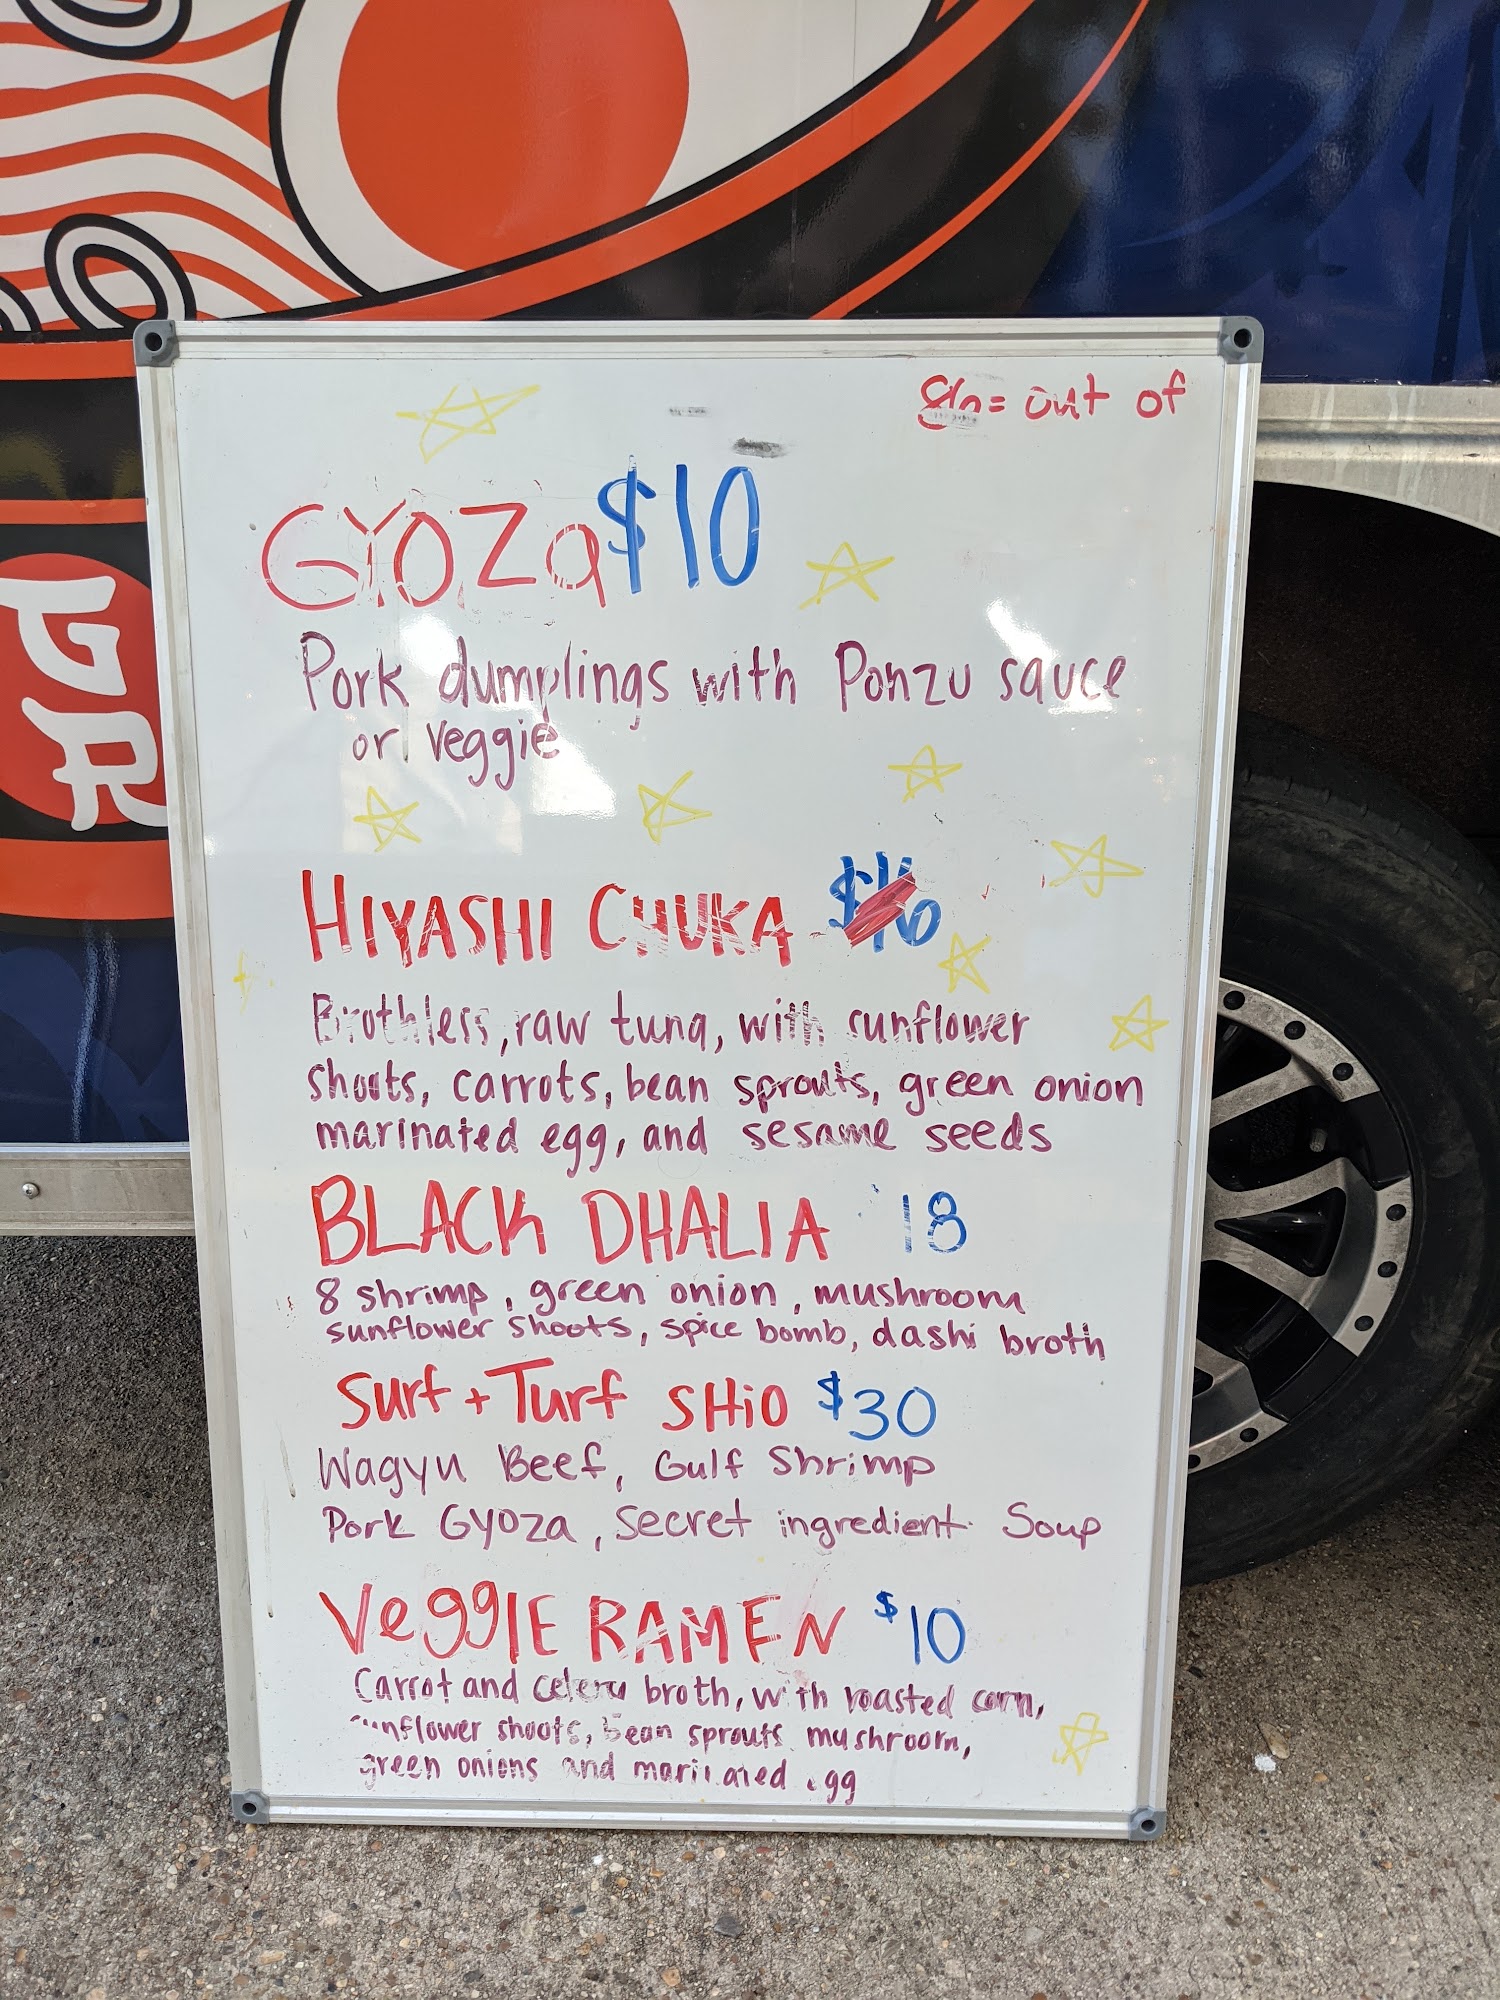 = out of
GYOZa $10
Pork dumplings with Ponzu sauce
or veggie
HIYASHI CHUKA $16
Brothless, raw tuna, with sunflower
shoots, carrots, bean sprouts, green onion
marinated egg, and sesame seeds
BLACK DHALIA 18
8 shrimp, green onion, mushroom
sunflower shoots, spice bomb, dashi broth
Surf + Turf SHiO $30
Wagyu Beef, Gulf Shrimp
Pork Gyoza, Secret ingredient Soup
VeggIE RAMEN $10
Carrot and celery broth, with roasted corn,
sunflower shoots, bean sprouts mushroom,
green onions and marinated egg